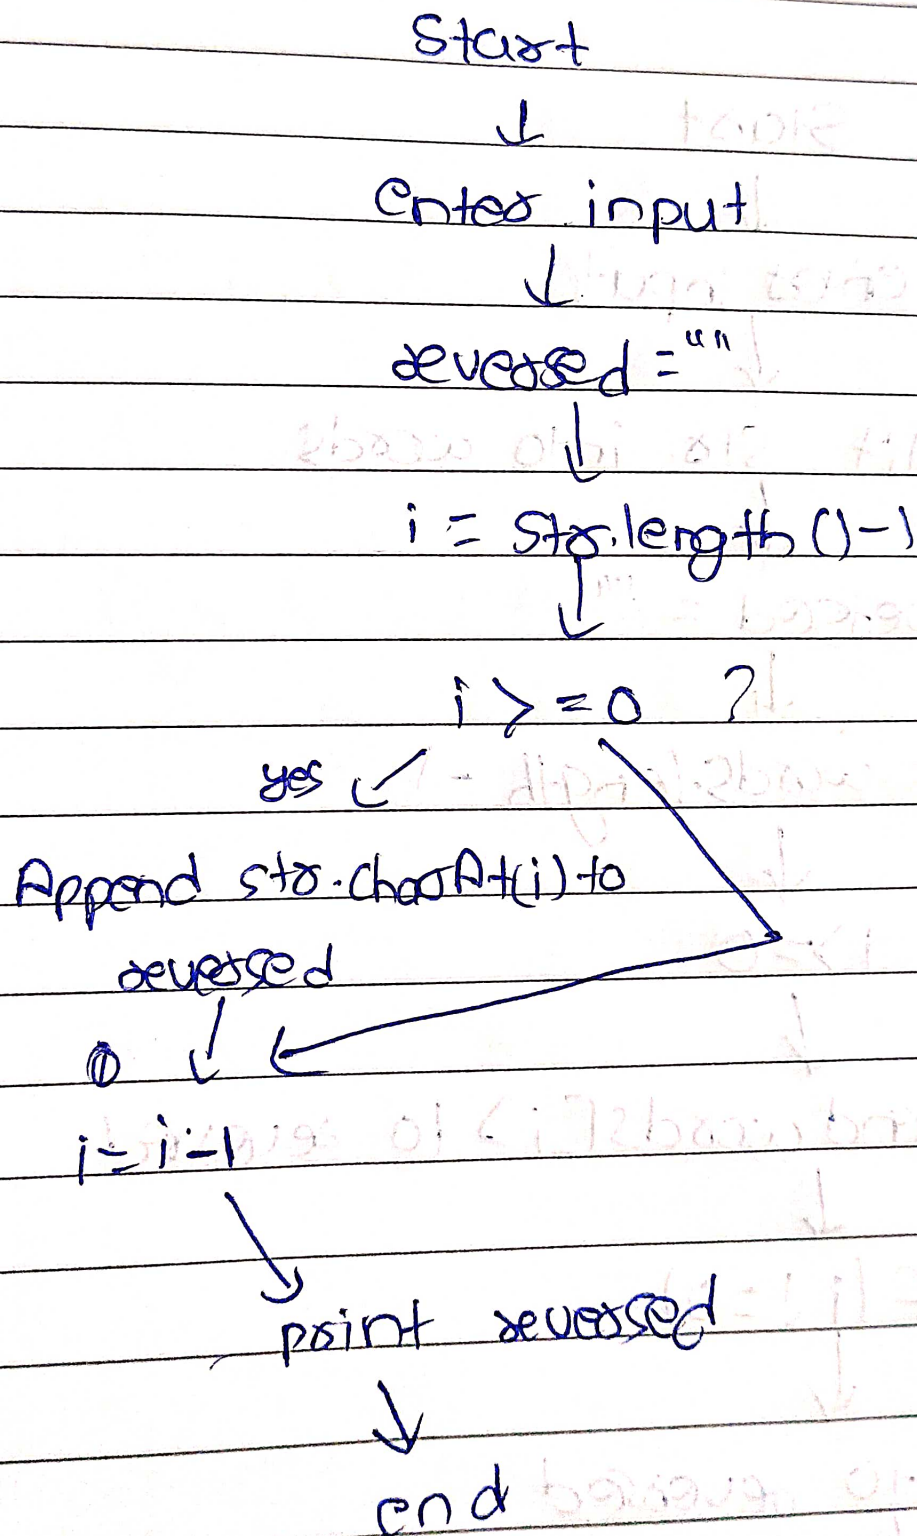 Start
Enter input
reversed = ""
i = Str.length()-1
i >= 0 ?
yes
Append str.charAt(i) to
reversed
i = i-1
print reversed
end